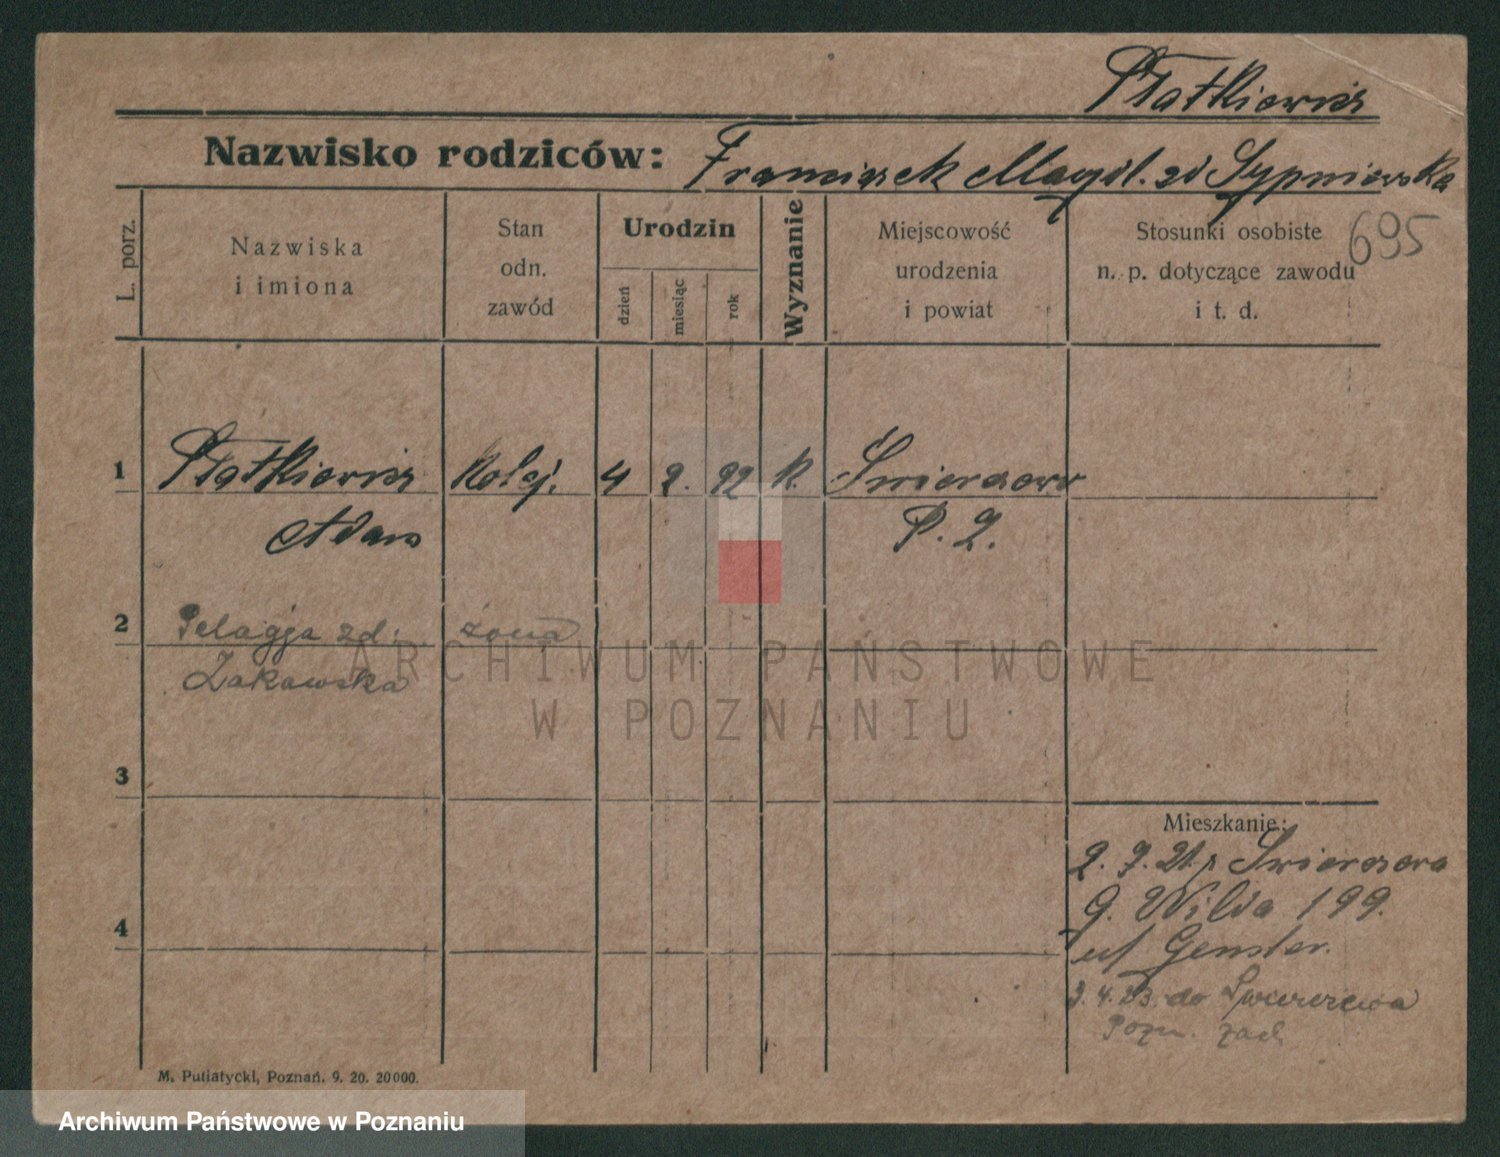 Płatkiewicz
Nazwisko rodziców: Franciszek Magd. zd Sypniewska
695
L. porz.
Nazwiska
i imiona
Stan
odn.
zawód
Urodzin
dzień
miesiąc
rok
Wyznanie
Miejscowość
urodzenia
i powiat
Stosunki osobiste
n. p. dotyczące zawodu
i t. d.
1 Płatkiewicz Kolej. 4 2. 92 k. Świerczewo
Adam P. Z.
2 Pelagja zd. żona
Żakowska
3
Mieszkanie:
2. 7. 21. Świerczewo
g. Wilda 199.
u/ Genster.
4
3. 4. 23. do Świerczewa
Pozn. zach
M. Putiatycki, Poznań. 9. 20. 20000.
ARCHIWUM PAŃSTWOWE
W POZNANIU
Archiwum Państwowe w Poznaniu